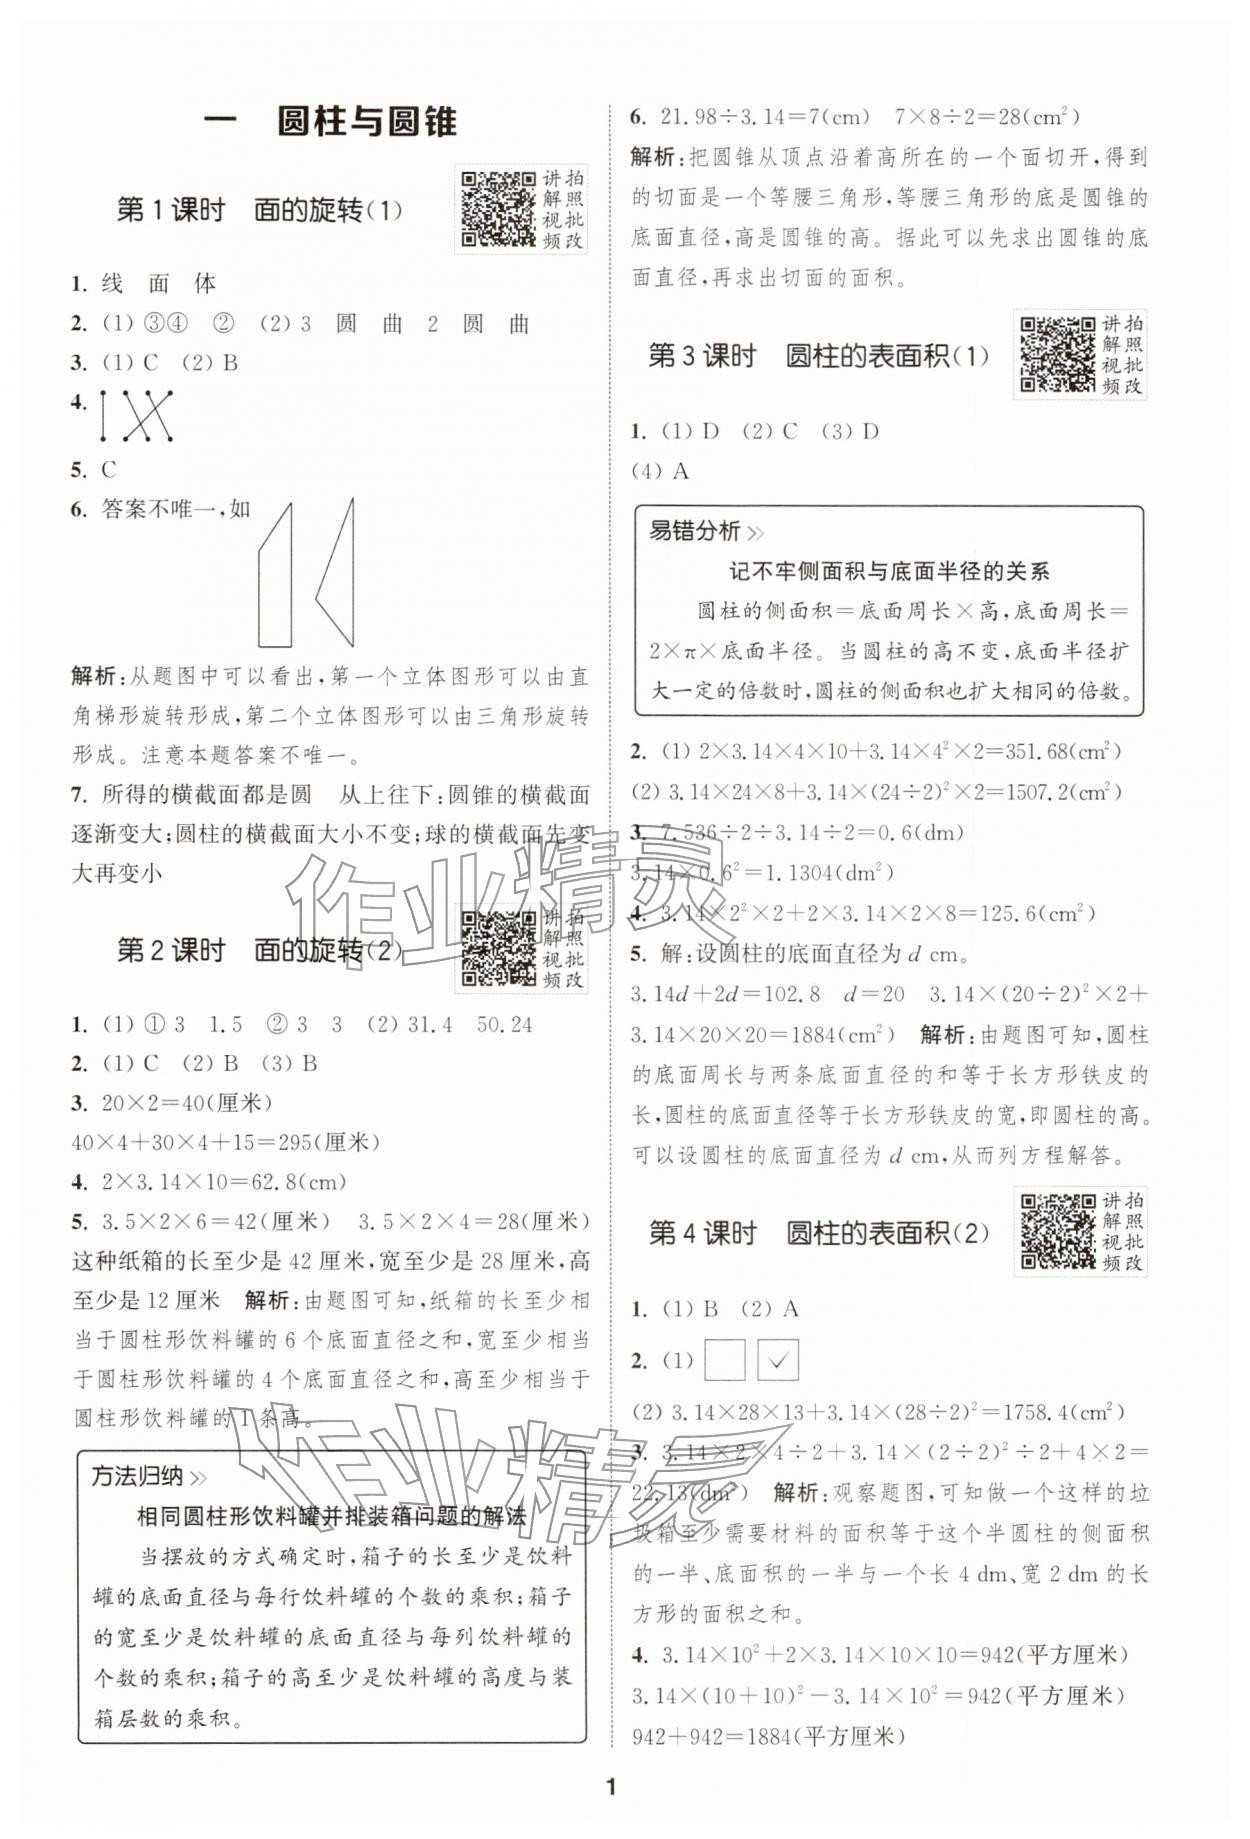 一 圆柱与圆锥
第1课时 面的旋转(1)
讲拍
解照
视批
频改
1. 线 面 体
2. (1) ③④ ② (2) 3 圆 曲 2 圆 曲
3. (1) C (2) B
4.
5. C
6. 答案不唯一,如
解析:从题图中可以看出,第一个立体图形可以由直
角梯形旋转形成,第二个立体图形可以由三角形旋转
形成。注意本题答案不唯一。
7. 所得的横截面都是圆 从上往下:圆锥的横截面
逐渐变大;圆柱的横截面大小不变;球的横截面先变
大再变小
第2课时 面的旋转(2)
讲拍
解照
视批
频改
1. (1) ① 3 1.5 ② 3 3 (2) 31.4 50.24
2. (1) C (2) B (3) B
3. 20×2=40(厘米)
40×4+30×4+15=295(厘米)
4. 2×3.14×10=62.8(cm)
5. 3.5×2×6=42(厘米) 3.5×2×4=28(厘米)
这种纸箱的长至少是 42 厘米,宽至少是 28 厘米,高
至少是 12 厘米 解析:由题图可知,纸箱的长至少相
当于圆柱形饮料罐的 6 个底面直径之和,宽至少相当
于圆柱形饮料罐的 4 个底面直径之和,高至少相当于
圆柱形饮料罐的 1 条高。
方法归纳
相同圆柱形饮料罐并排装箱问题的解法
当摆放的方式确定时,箱子的长至少是饮料
罐的底面直径与每行饮料罐的个数的乘积;箱子
的宽至少是饮料罐的底面直径与每列饮料罐的
个数的乘积;箱子的高至少是饮料罐的高度与装
箱层数的乘积。
6. 21.98÷3.14=7(cm) 7×8÷2=28(cm²)
解析:把圆锥从顶点沿着高所在的一个面切开,得到
的切面是一个等腰三角形,等腰三角形的底是圆锥的
底面直径,高是圆锥的高。据此可以先求出圆锥的底
面直径,再求出切面的面积。
第3课时 圆柱的表面积(1)
讲拍
解照
视批
频改
1. (1) D (2) C (3) D
(4) A
易错分析
记不牢侧面积与底面半径的关系
圆柱的侧面积=底面周长×高,底面周长=
2×π×底面半径。当圆柱的高不变,底面半径扩
大一定的倍数时,圆柱的侧面积也扩大相同的倍数。
2. (1) 2×3.14×4×10+3.14×4²×2=351.68(cm²)
(2) 3.14×24×8+3.14×(24÷2)²×2=1507.2(cm²)
3. 7.536÷2÷3.14÷2=0.6(dm)
3.14×0.6²=1.1304(dm²)
4. 3.14×2²×2+2×3.14×2×8=125.6(cm²)
5. 解:设圆柱的底面直径为 d cm。
3.14d+2d=102.8 d=20 3.14×(20÷2)²×2+
3.14×20×20=1884(cm²) 解析:由题图可知,圆柱
的底面周长与两条底面直径的和等于长方形铁皮的
长,圆柱的底面直径等于长方形铁皮的宽,即圆柱的高。
可以设圆柱的底面直径为 d cm,从而列方程解答。
第4课时 圆柱的表面积(2)
讲拍
解照
视批
频改
1. (1) B (2) A
2. (1) ✓
(2) 3.14×28×13+3.14×(28÷2)²=1758.4(cm²)
3. 3.14×2×4÷2+3.14×(2÷2)²÷2+4×2=
22.13(dm²) 解析:观察题图,可知做一个这样的垃
圾箱至少需要材料的面积等于这个半圆柱的侧面积
的一半、底面积的一半与一个长 4 dm、宽 2 dm 的长
方形的面积之和。
4. 3.14×10²+2×3.14×10×10=942(平方厘米)
3.14×(10+10)²−3.14×10²=942(平方厘米)
942+942=1884(平方厘米)
1
作业精灵
作业精灵